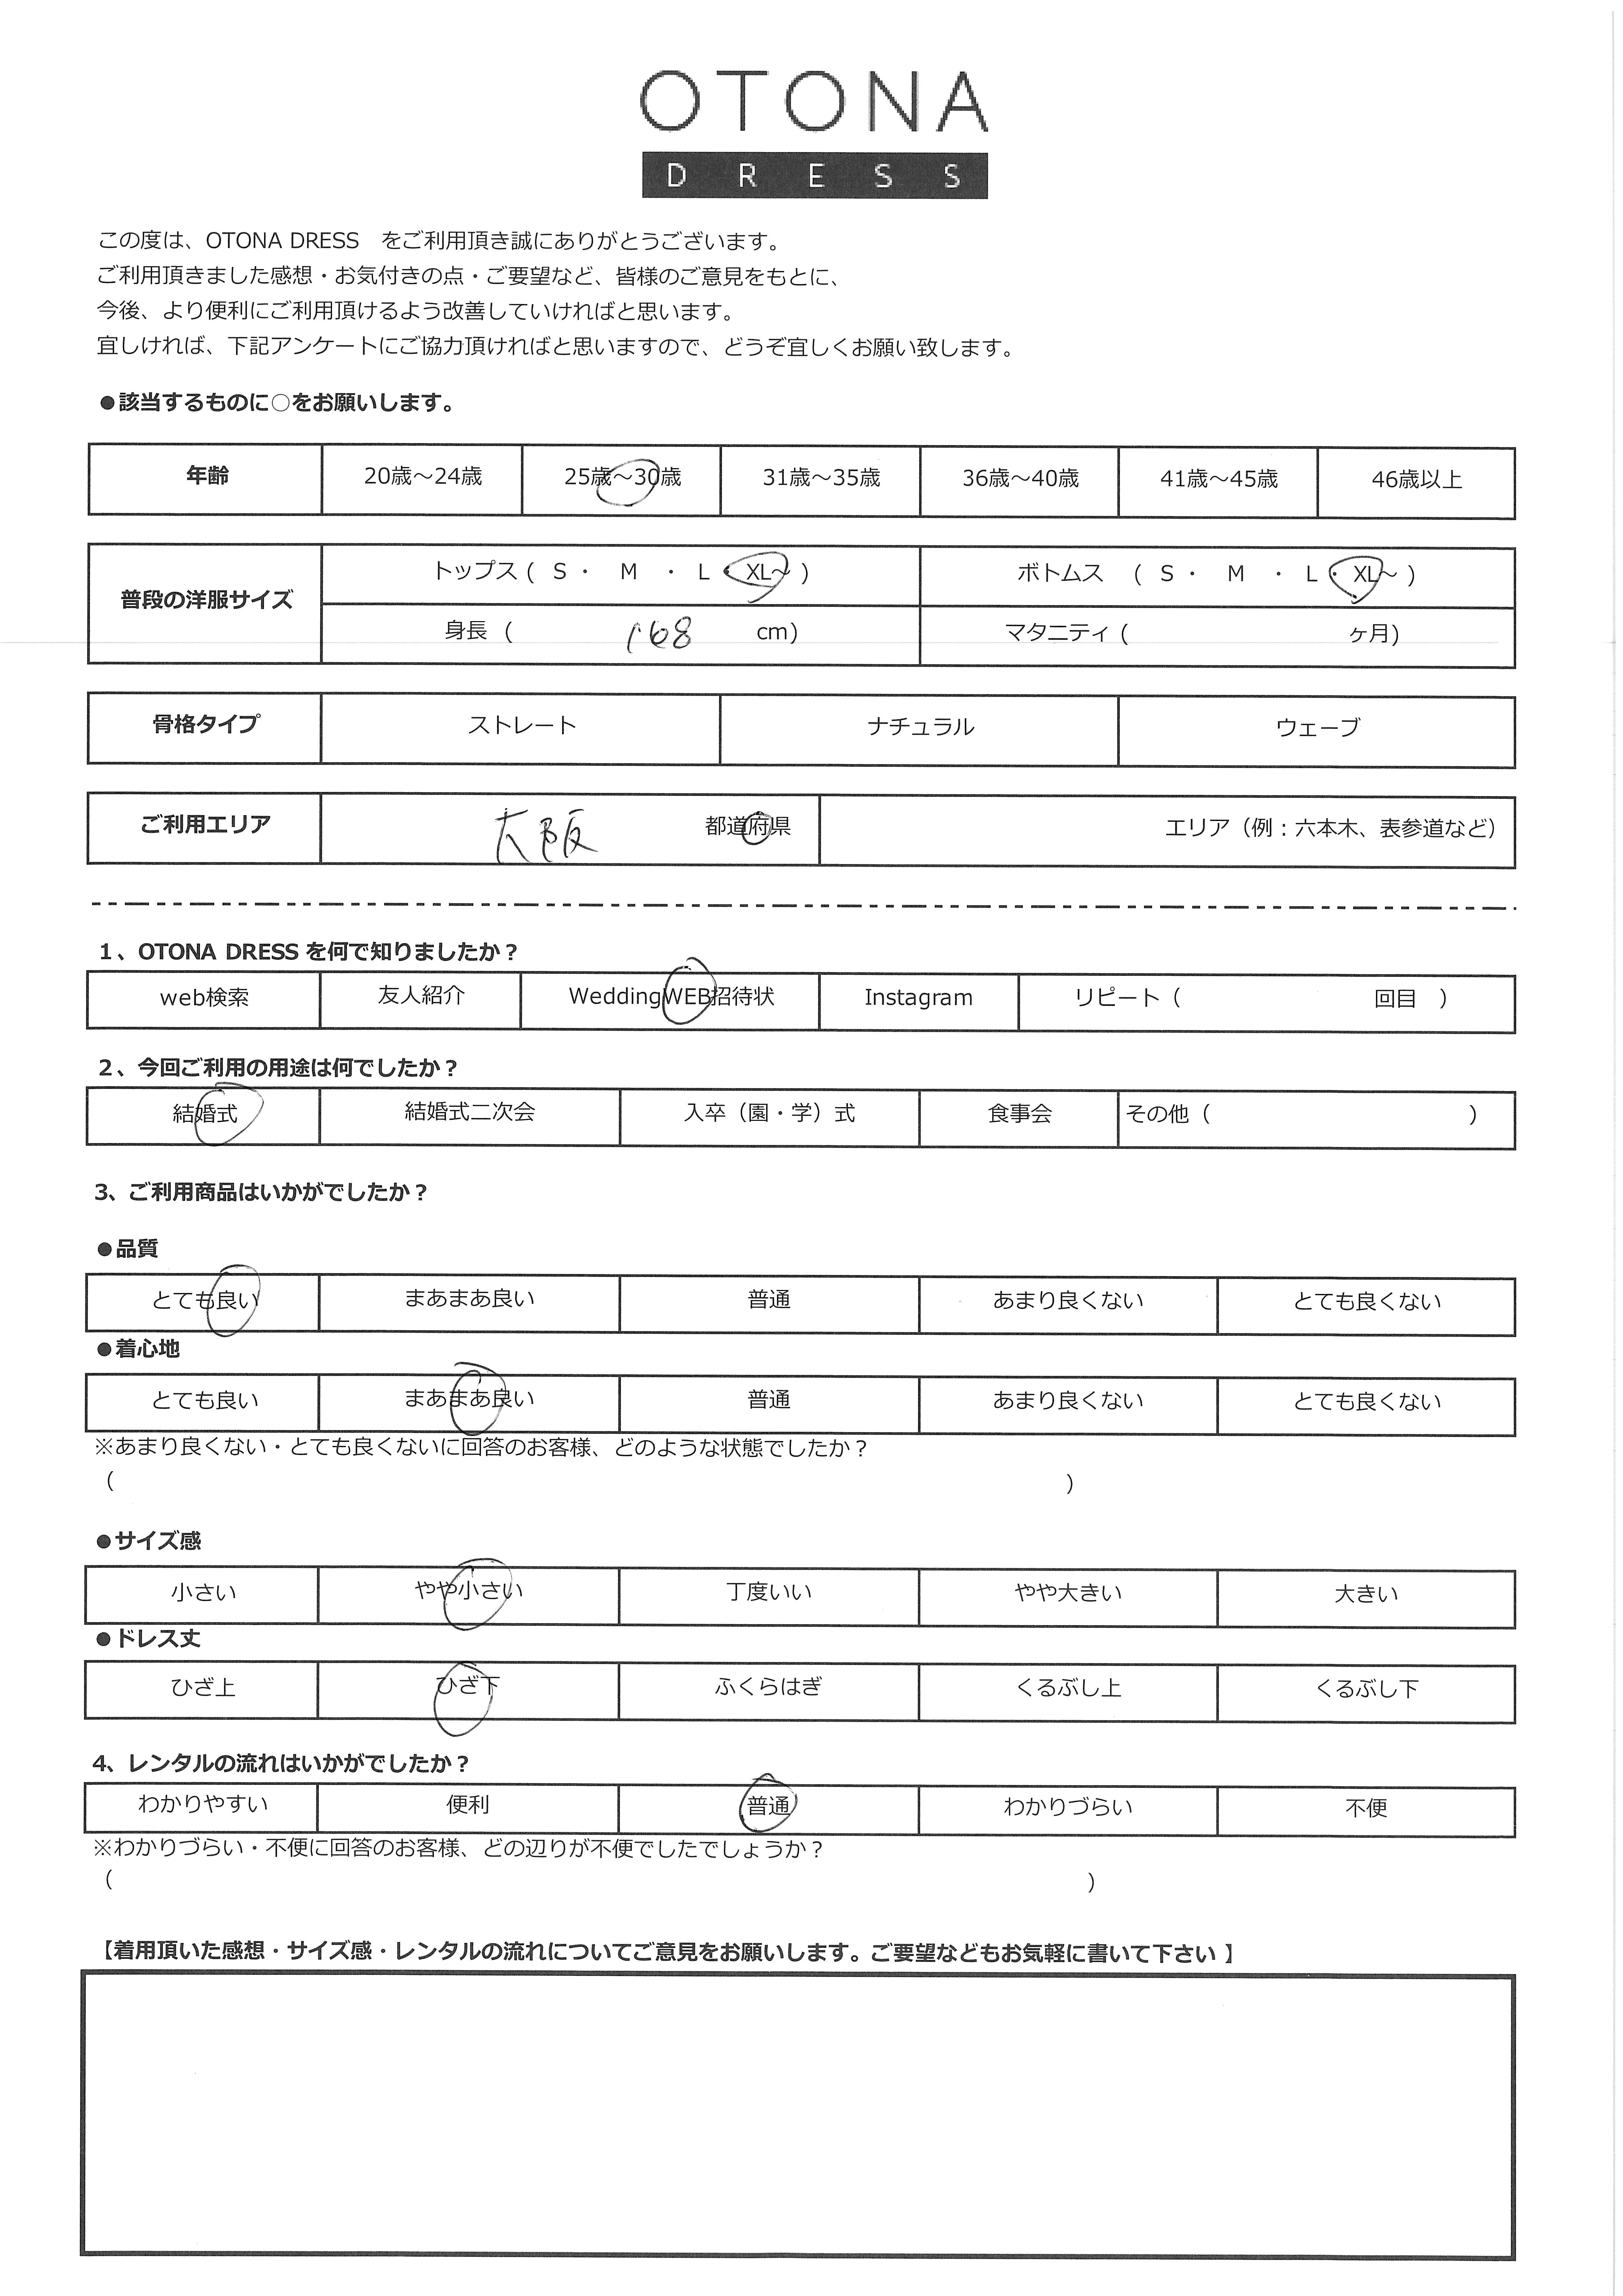 OTONA
DRESS
この度は、OTONA DRESS　をご利用頂き誠にありがとうございます。
ご利用頂きました感想・お気付きの点・ご要望など、皆様のご意見をもとに、
今後、より便利にご利用頂けるよう改善していければと思います。
宜しければ、下記アンケートにご協力頂ければと思いますので、どうぞ宜しくお願い致します。
●該当するものに○をお願いします。
年齢 20歳～24歳 25歳～30歳 31歳～35歳 36歳～40歳 41歳～45歳 46歳以上
普段の洋服サイズ トップス ( S ・ M ・ L ・ XL～ ) ボトムス ( S ・ M ・ L ・ XL～ )
身長 ( 168 cm) マタニティ ( ヶ月)
骨格タイプ ストレート ナチュラル ウェーブ
ご利用エリア 大阪 都道府県 エリア（例：六本木、表参道など）
1、OTONA DRESS を何で知りましたか？
web検索 友人紹介 WeddingWEB招待状 Instagram リピート（ 回目 ）
2、今回ご利用の用途は何でしたか？
結婚式 結婚式二次会 入卒（園・学）式 食事会 その他（ ）
3、ご利用商品はいかがでしたか？
●品質
とても良い まあまあ良い 普通 あまり良くない とても良くない
●着心地
とても良い まあまあ良い 普通 あまり良くない とても良くない
※あまり良くない・とても良くないに回答のお客様、どのような状態でしたか？
（ ）
●サイズ感
小さい やや小さい 丁度いい やや大きい 大きい
●ドレス丈
ひざ上 ひざ下 ふくらはぎ くるぶし上 くるぶし下
4、レンタルの流れはいかがでしたか？
わかりやすい 便利 普通 わかりづらい 不便
※わかりづらい・不便に回答のお客様、どの辺りが不便でしたでしょうか？
（ ）
【着用頂いた感想・サイズ感・レンタルの流れについてご意見をお願いします。ご要望などもお気軽に書いて下さい 】